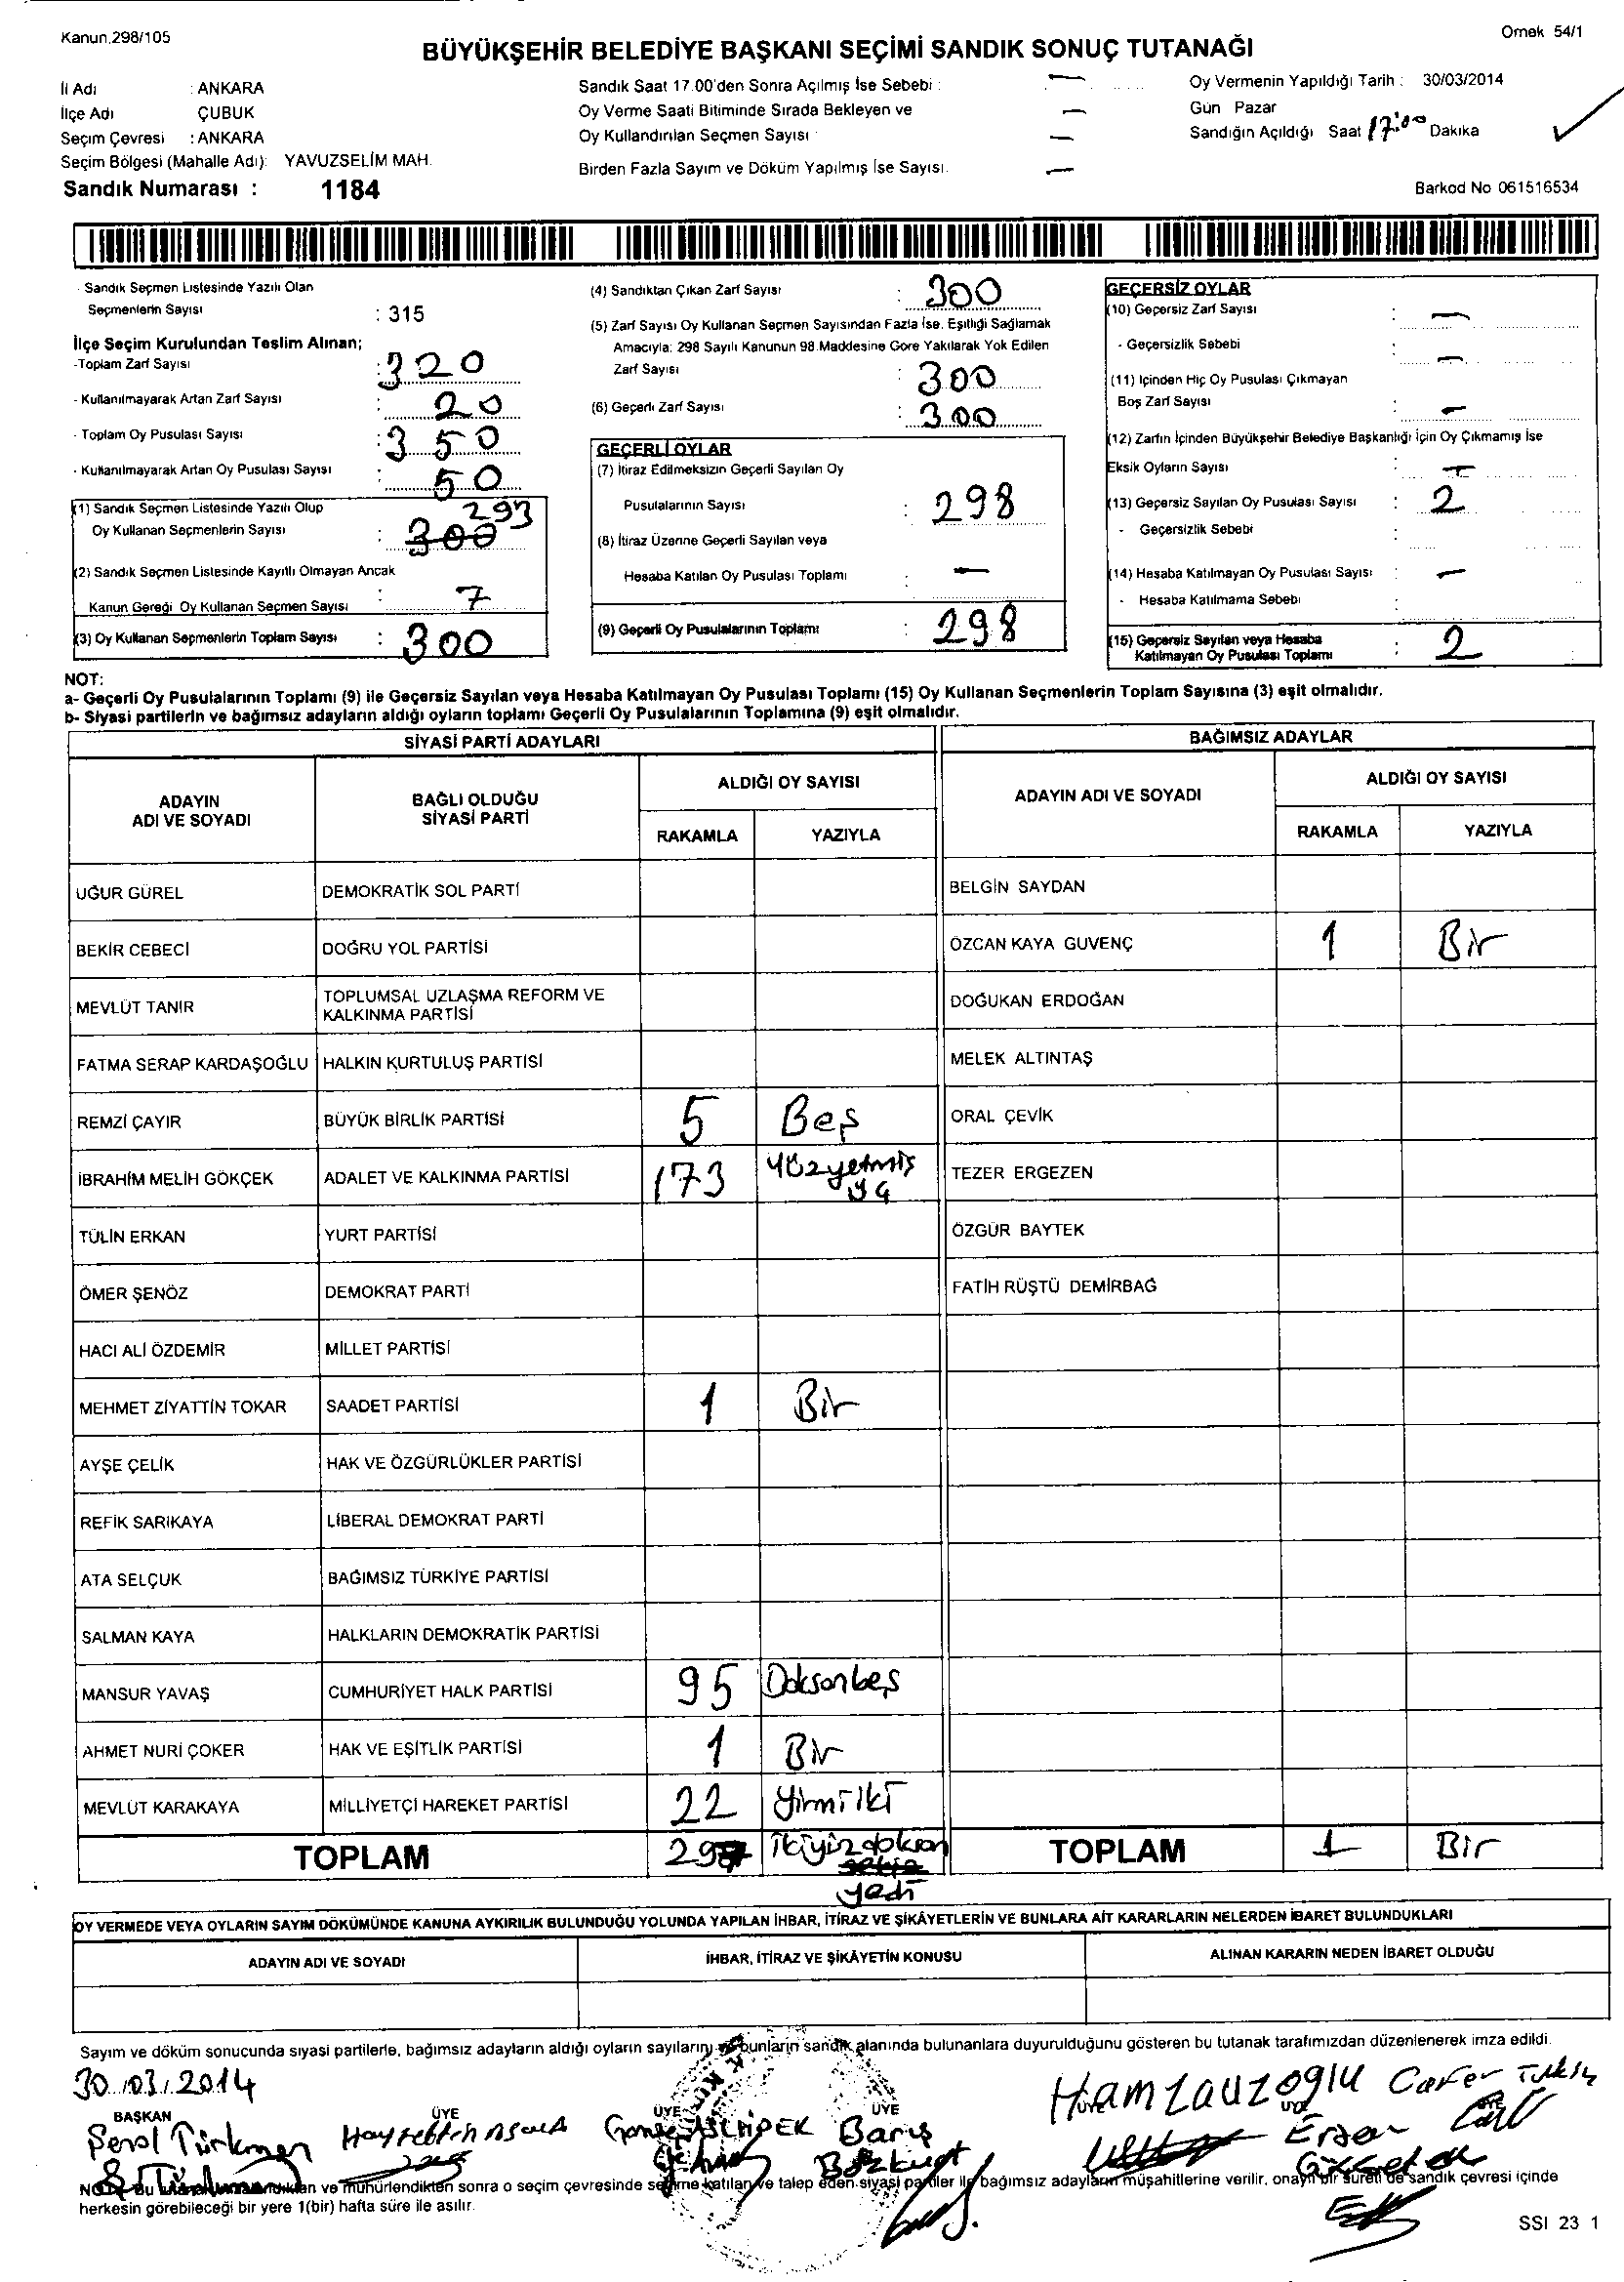 Kanun.298/105
Örnek 54/1
BÜYÜKŞEHİR BELEDİYE BAŞKANI SEÇİMİ SANDIK SONUÇ TUTANAĞI
İl Adı : ANKARA
İlçe Adı ÇUBUK
Seçim Çevresi : ANKARA
Seçim Bölgesi (Mahalle Adı): YAVUZSELİM MAH.
Sandık Numarası : 1184
Sandık Saat 17.00'den Sonra Açılmış İse Sebebi : —
Oy Verme Saati Bitiminde Sırada Bekleyen ve —
Oy Kullandırılan Seçmen Sayısı : —
Birden Fazla Sayım ve Döküm Yapılmış İse Sayısı. —
Oy Vermenin Yapıldığı Tarih : 30/03/2014
Gün Pazar
Sandığın Açıldığı Saat 17:00 Dakika
Barkod No 061516534
- Sandık Seçmen Listesinde Yazılı Olan
Seçmenlerin Sayısı : 315
İlçe Seçim Kurulundan Teslim Alınan;
-Toplam Zarf Sayısı : 320
- Kullanılmayarak Artan Zarf Sayısı : 20
- Toplam Oy Pusulası Sayısı : 350
- Kullanılmayarak Artan Oy Pusulası Sayısı : 50
(1) Sandık Seçmen Listesinde Yazılı Olup 293
Oy Kullanan Seçmenlerin Sayısı : 300
(2) Sandık Seçmen Listesinde Kayıtlı Olmayan Ancak
Kanun Gereği Oy Kullanan Seçmen Sayısı : 7
(3) Oy Kullanan Seçmenlerin Toplam Sayısı : 300
(4) Sandıktan Çıkan Zarf Sayısı : 300
(5) Zarf Sayısı Oy Kullanan Seçmen Sayısından Fazla İse. Eşitliği Sağlamak
Amacıyla: 298 Sayılı Kanunun 98.Maddesine Göre Yakılarak Yok Edilen
Zarf Sayısı : 300
(6) Geçerli Zarf Sayısı : 300
GEÇERLİ OYLAR
(7) İtiraz Edilmeksizin Geçerli Sayılan Oy
Pusulalarının Sayısı : 298
(8) İtiraz Üzerine Geçerli Sayılan veya
Hesaba Katılan Oy Pusulası Toplamı : —
(9) Geçerli Oy Pusulalarının Toplamı : 298
GEÇERSİZ OYLAR
(10) Geçersiz Zarf Sayısı : —
- Geçersizlik Sebebi : —
(11) İçinden Hiç Oy Pusulası Çıkmayan
Boş Zarf Sayısı : —
(12) Zarfın İçinden Büyükşehir Belediye Başkanlığı İçin Oy Çıkmamış İse
Eksik Oyların Sayısı : —
(13) Geçersiz Sayılan Oy Pusulası Sayısı : 2
- Geçersizlik Sebebi :
(14) Hesaba Katılmayan Oy Pusulası Sayısı : —
- Hesaba Katılmama Sebebi :
(15) Geçersiz Sayılan veya Hesaba
Katılmayan Oy Pusulası Toplamı : 2
NOT:
a- Geçerli Oy Pusulalarının Toplamı (9) ile Geçersiz Sayılan veya Hesaba Katılmayan Oy Pusulası Toplamı (15) Oy Kullanan Seçmenlerin Toplam Sayısına (3) eşit olmalıdır.
b- Siyasi partilerin ve bağımsız adayların aldığı oyların toplamı Geçerli Oy Pusulalarının Toplamına (9) eşit olmalıdır.
SİYASİ PARTİ ADAYLARI
ADAYIN ADI VE SOYADI
BAĞLI OLDUĞU SİYASİ PARTİ
ALDIĞI OY SAYISI
RAKAMLA YAZIYLA
UĞUR GÜREL DEMOKRATİK SOL PARTİ
BEKİR CEBECİ DOĞRU YOL PARTİSİ
MEVLÜT TANIR TOPLUMSAL UZLAŞMA REFORM VE
KALKINMA PARTİSİ
FATMA SERAP KARDAŞOĞLU HALKIN KURTULUŞ PARTİSİ
REMZİ ÇAYIR BÜYÜK BİRLİK PARTİSİ 5 Beş
İBRAHİM MELİH GÖKÇEK ADALET VE KALKINMA PARTİSİ 173 Yüzyetmiş
üç
TÜLİN ERKAN YURT PARTİSİ
ÖMER ŞENÖZ DEMOKRAT PARTİ
HACI ALİ ÖZDEMİR MİLLET PARTİSİ
MEHMET ZİYATTİN TOKAR SAADET PARTİSİ 1 Bir
AYŞE ÇELİK HAK VE ÖZGÜRLÜKLER PARTİSİ
REFİK SARIKAYA LİBERAL DEMOKRAT PARTİ
ATA SELÇUK BAĞIMSIZ TÜRKİYE PARTİSİ
SALMAN KAYA HALKLARIN DEMOKRATİK PARTİSİ
MANSUR YAVAŞ CUMHURİYET HALK PARTİSİ 95 Doksanbeş
AHMET NURİ ÇOKER HAK VE EŞİTLİK PARTİSİ 1 Bir
MEVLÜT KARAKAYA MİLLİYETÇİ HAREKET PARTİSİ 22 Yirmiiki
TOPLAM 297 ikiyüzdoksan
sekiz
yedi
BAĞIMSIZ ADAYLAR
ADAYIN ADI VE SOYADI
ALDIĞI OY SAYISI
RAKAMLA YAZIYLA
BELGİN SAYDAN
ÖZCAN KAYA GÜVENÇ 1 Bir
DOĞUKAN ERDOĞAN
MELEK ALTINTAŞ
ORAL ÇEVİK
TEZER ERGEZEN
ÖZGÜR BAYTEK
FATİH RÜŞTÜ DEMİRBAĞ
TOPLAM 1 Bir
OY VERMEDE VEYA OYLARIN SAYIM DÖKÜMÜNDE KANUNA AYKIRILIK BULUNDUĞU YOLUNDA YAPILAN İHBAR, İTİRAZ VE ŞİKÂYETLERİN VE BUNLARA AİT KARARLARIN NELERDEN İBARET BULUNDUKLARI
ADAYIN ADI VE SOYADI İHBAR, İTİRAZ VE ŞİKÂYETİN KONUSU ALINAN KARARIN NEDEN İBARET OLDUĞU
Sayım ve döküm sonucunda siyasi partilerle, bağımsız adayların aldığı oyların sayılarını ve bunların sandık alanında bulunanlara duyurulduğunu gösteren bu tutanak tarafımızdan düzenlenerek imza edildi.
30.03.2014
BAŞKAN ÜYE ÜYE ÜYE
Şenol Türkmen Hayrettin Barış Bozkurt Hamzauzoglu Cafer
NOT: Bu ve mühürlendikten sonra o seçim çevresinde seçime katılan ve talep eden siyasi partiler ile bağımsız adayların müşahitlerine verilir, onaylı bir sureti de sandık çevresi içinde
herkesin görebileceği bir yere 1(bir) hafta süre ile asılır.
SSI 23 1